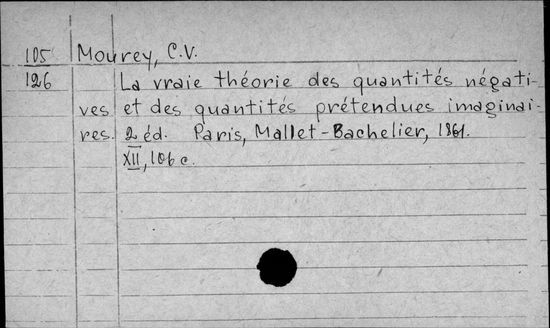 105 Mourey, C.V.
126 La vraie théorie des quantités négati-
ves et des quantités prétendues imaginai-
res. 2 éd. Paris, Mallet-Bachelier, 1861.
XII, 106 c.